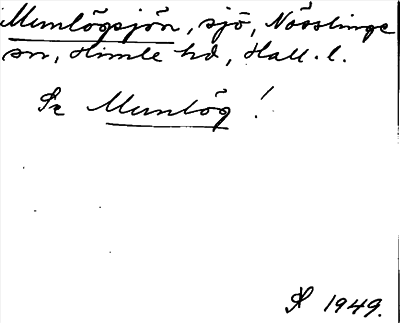 Munlögsjön, sjö, Nösslinge
sn, Himle hd, Hall. l.
Se Munlög!
1949.